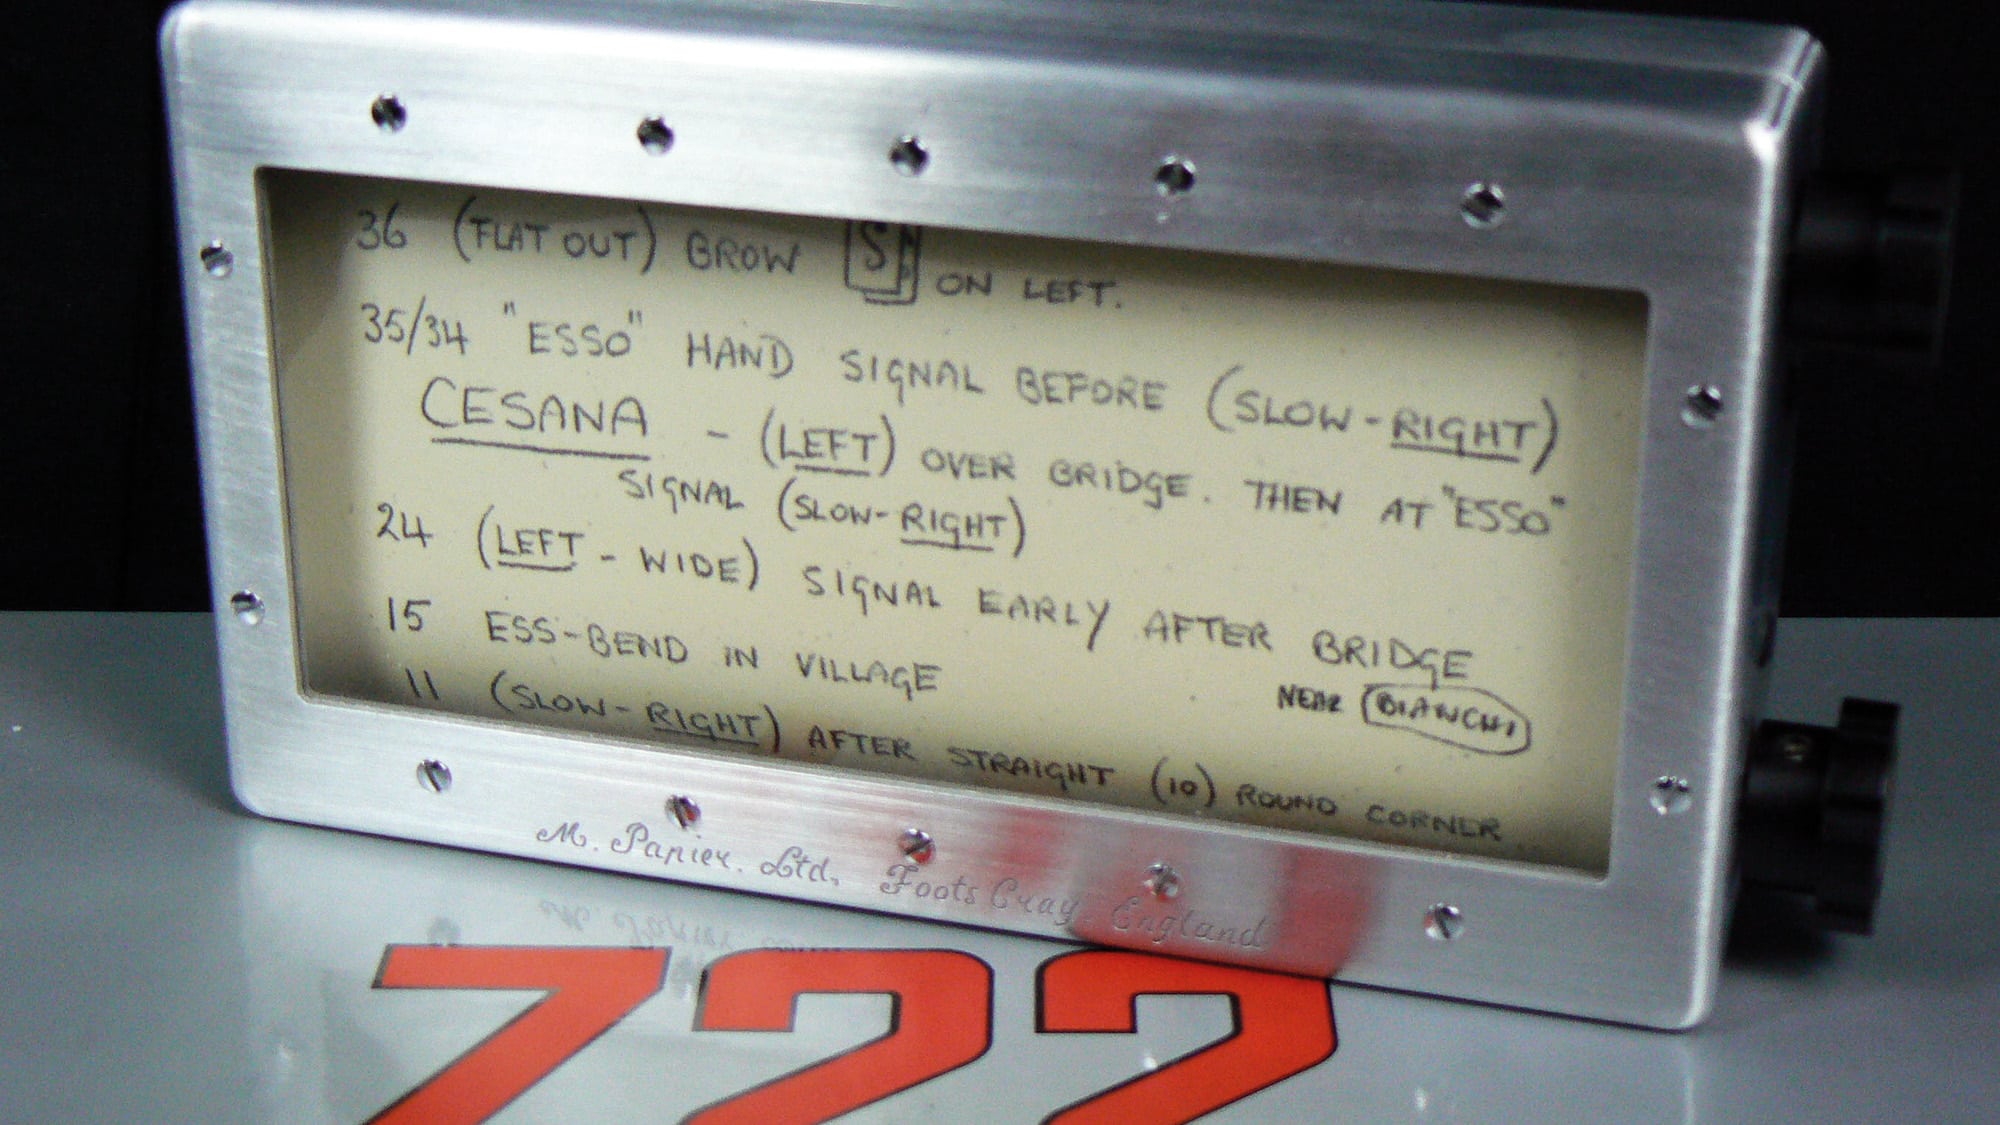 36 (FLAT OUT) BROW S ON LEFT.
35/34 "ESSO" HAND SIGNAL BEFORE (SLOW-RIGHT)
CESANA - (LEFT) OVER BRIDGE. THEN AT "ESSO"
SIGNAL (SLOW-RIGHT)
24 (LEFT - WIDE) SIGNAL EARLY AFTER BRIDGE
15 ESS-BEND IN VILLAGE NEAR BIANCHI
11 (SLOW-RIGHT) AFTER STRAIGHT (10) ROUND CORNER
M. Panier. Ltd, Foots Cray, England
722